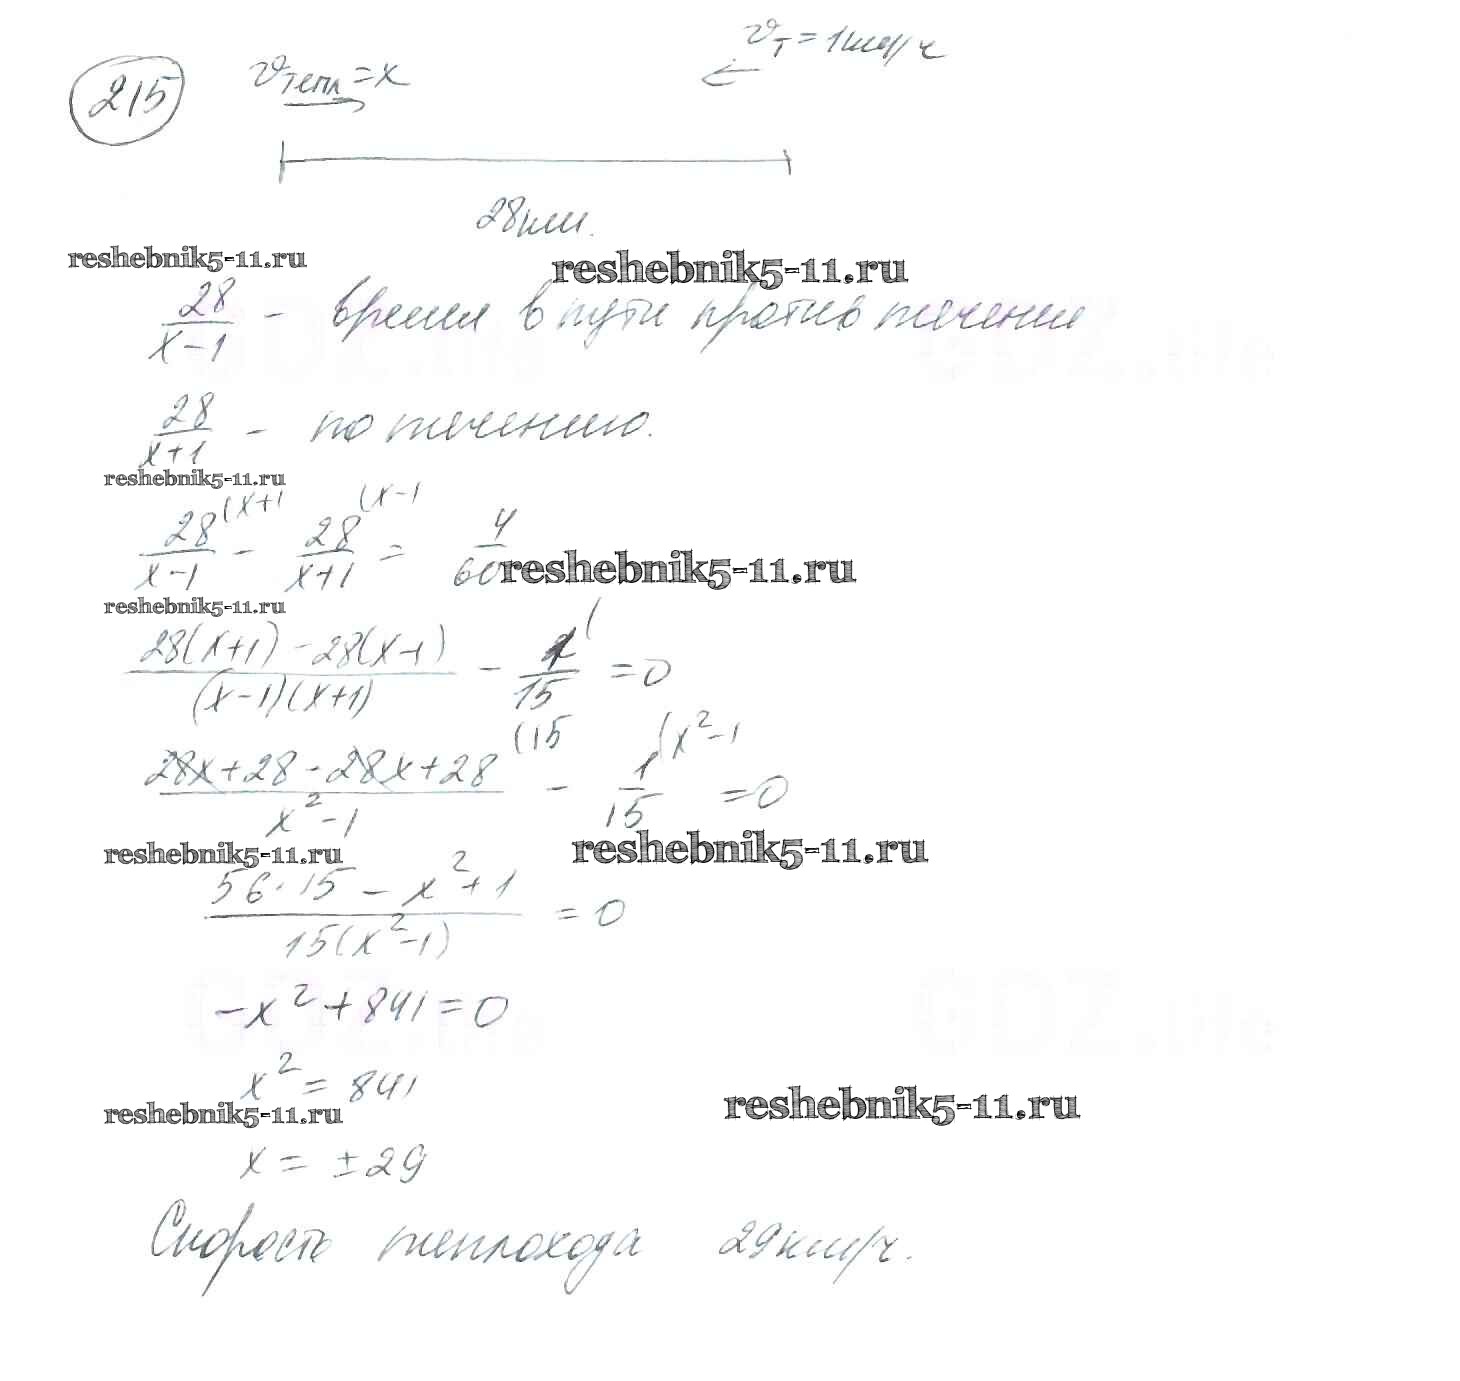 215
vтепл = x
vт = 1 км/ч
28 км.
reshebnik5-11.ru
reshebnik5-11.ru
28/(x-1) - время в пути против течения
28/(x+1) - по течению.
reshebnik5-11.ru
28/(x-1) (x+1 - 28/(x+1) (x-1 = 4/60
reshebnik5-11.ru
reshebnik5-11.ru
(28(x+1) - 28(x-1))/((x-1)(x+1)) - 1/15 = 0
(28x+28-28x+28)/(x²-1) (15 - 1/15 (x²-1 = 0
reshebnik5-11.ru
reshebnik5-11.ru
(56·15 - x² + 1)/(15(x²-1)) = 0
-x² + 841 = 0
x² = 841
reshebnik5-11.ru
reshebnik5-11.ru
x = ±29
Скорость теплохода 29 км/ч.